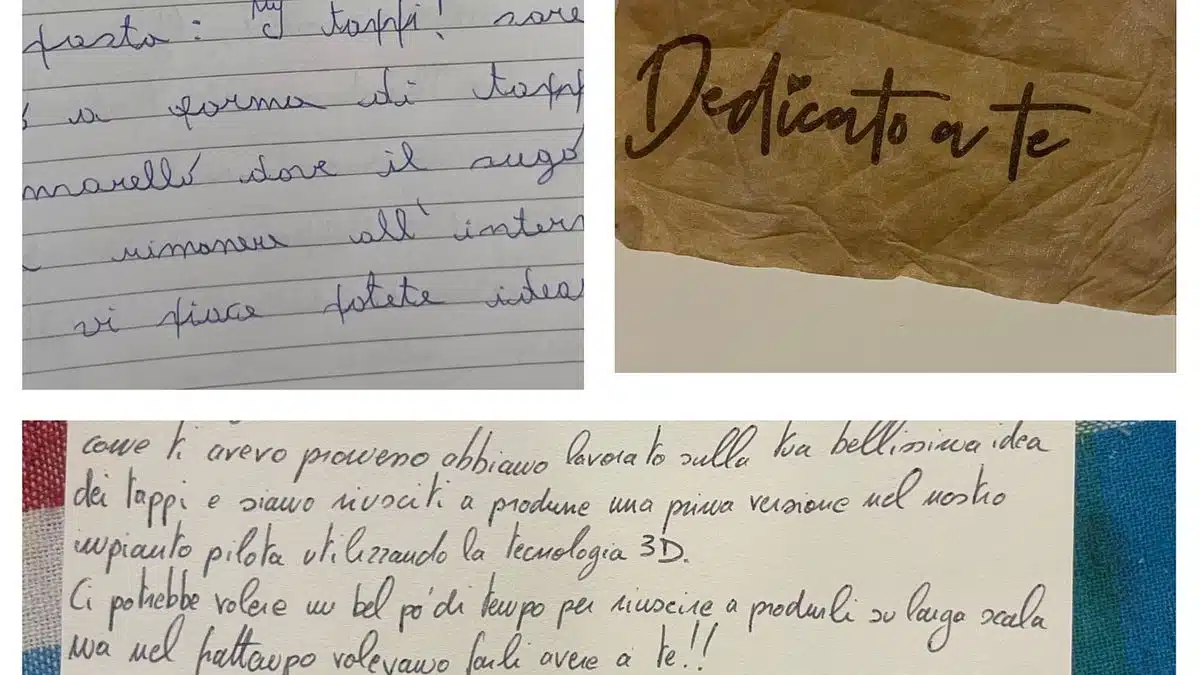 pasta: My tappi! sare
a forma di tapp
marello dove il sugo
rimanere all'intern
vi piace potete idea
Dedicato a te
come ti avevo promesso abbiamo lavorato sulla tua bellissima idea
dei tappi e siamo riusciti a produrre una prima versione nel nostro
impianto pilota utilizzando la tecnologia 3D.
Ci potrebbe volere un bel po' di tempo per riuscire a produrli su larga scala
ma nel frattempo volevamo farli avere a te!!